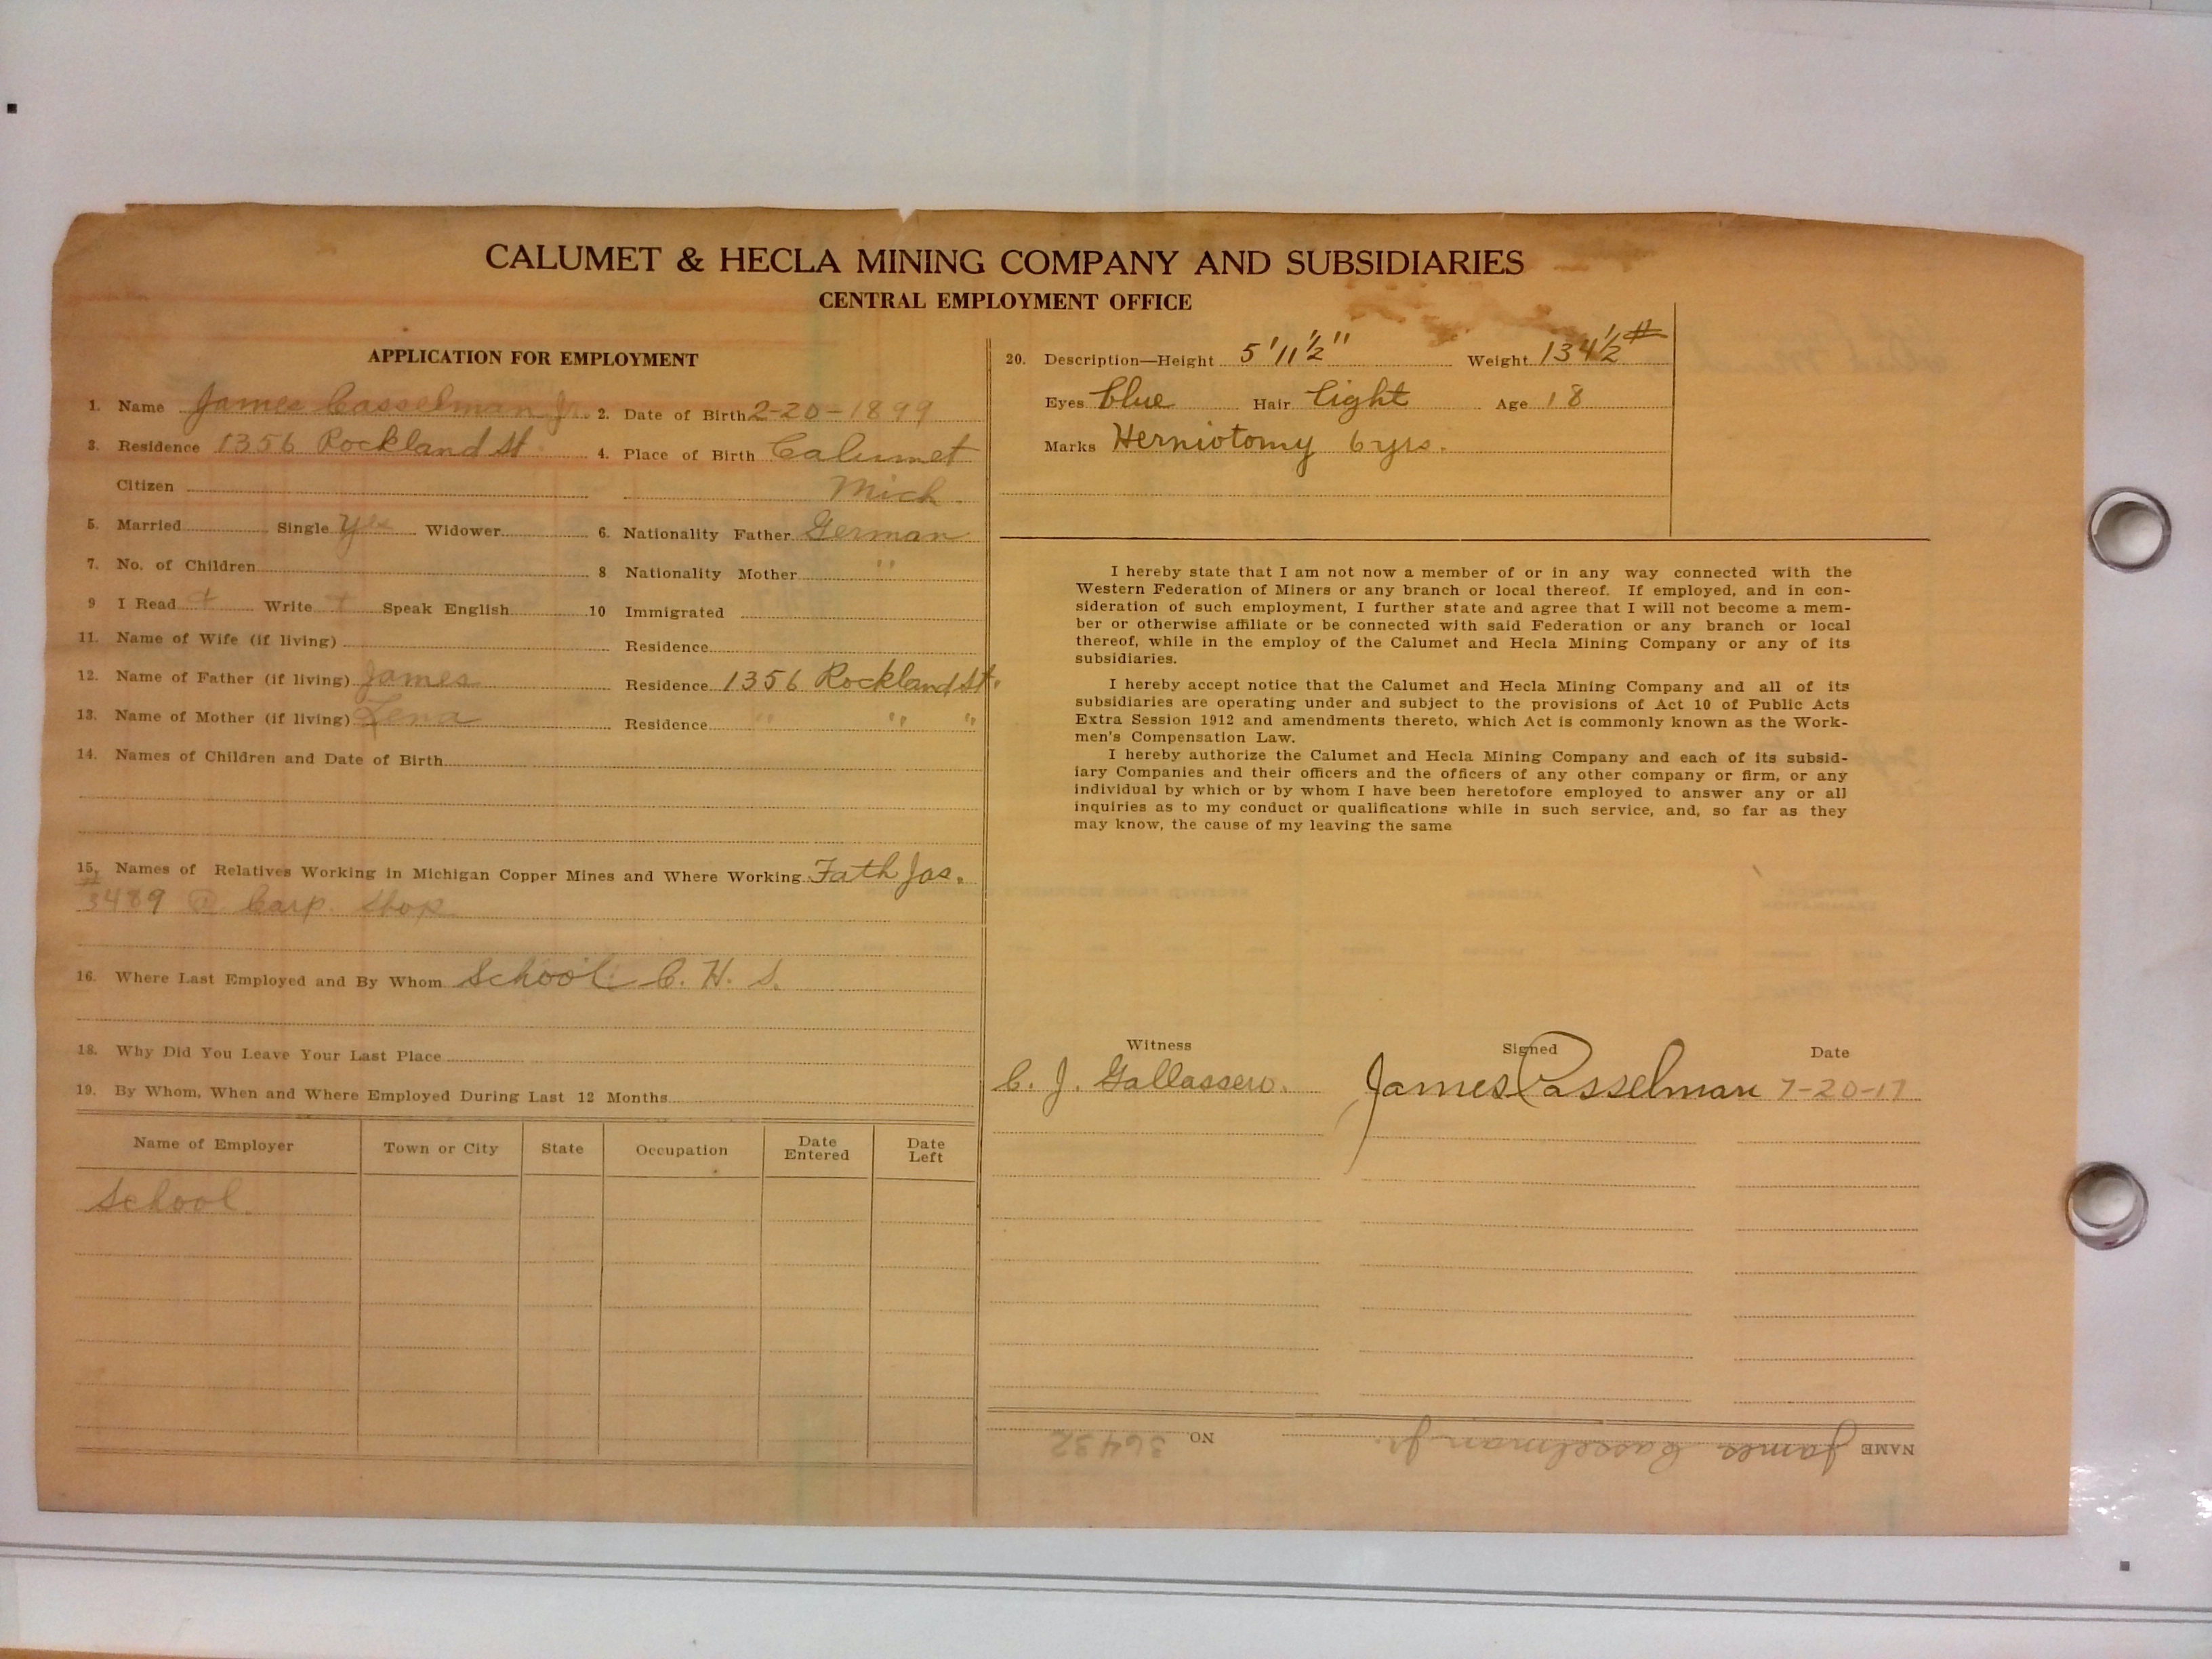 CALUMET & HECLA MINING COMPANY AND SUBSIDIARIES
CENTRAL EMPLOYMENT OFFICE
APPLICATION FOR EMPLOYMENT
1. Name James Casselman Jr. 2. Date of Birth 2-20-1899
3. Residence 1356 Rockland St 4. Place of Birth Calumet
Citizen Mich
5. Married Single Yes Widower 6. Nationality Father German
7. No. of Children 8 Nationality Mother "
9 I Read + Write + Speak English 10 Immigrated
11. Name of Wife (if living) Residence
12. Name of Father (if living) James Residence 1356 Rockland St.
13. Name of Mother (if living) Lena Residence " " "
14. Names of Children and Date of Birth
15. Names of Relatives Working in Michigan Copper Mines and Where Working Fath Jas.
#3489 @ Carp. Shop
16. Where Last Employed and By Whom School C. H. S.
18. Why Did You Leave Your Last Place
19. By Whom, When and Where Employed During Last 12 Months
Name of Employer Town or City State Occupation Date Entered Date Left
School
20. Description—Height 5'11½" Weight 134½ #
Eyes blue Hair light Age 18
Marks Herniotomy 6 yrs.
I hereby state that I am not now a member of or in any way connected with the
Western Federation of Miners or any branch or local thereof. If employed, and in con-
sideration of such employment, I further state and agree that I will not become a mem-
ber or otherwise affiliate or be connected with said Federation or any branch or local
thereof, while in the employ of the Calumet and Hecla Mining Company or any of its
subsidiaries.
I hereby accept notice that the Calumet and Hecla Mining Company and all of its
subsidiaries are operating under and subject to the provisions of Act 10 of Public Acts
Extra Session 1912 and amendments thereto, which Act is commonly known as the Work-
men's Compensation Law.
I hereby authorize the Calumet and Hecla Mining Company and each of its subsid-
iary Companies and their officers and the officers of any other company or firm, or any
individual by which or by whom I have been heretofore employed to answer any or all
inquiries as to my conduct or qualifications while in such service, and, so far as they
may know, the cause of my leaving the same
Witness Signed Date
C. J. Gallassero. James Casselman 7-20-17
NAME James Casselman Jr. NO 36432